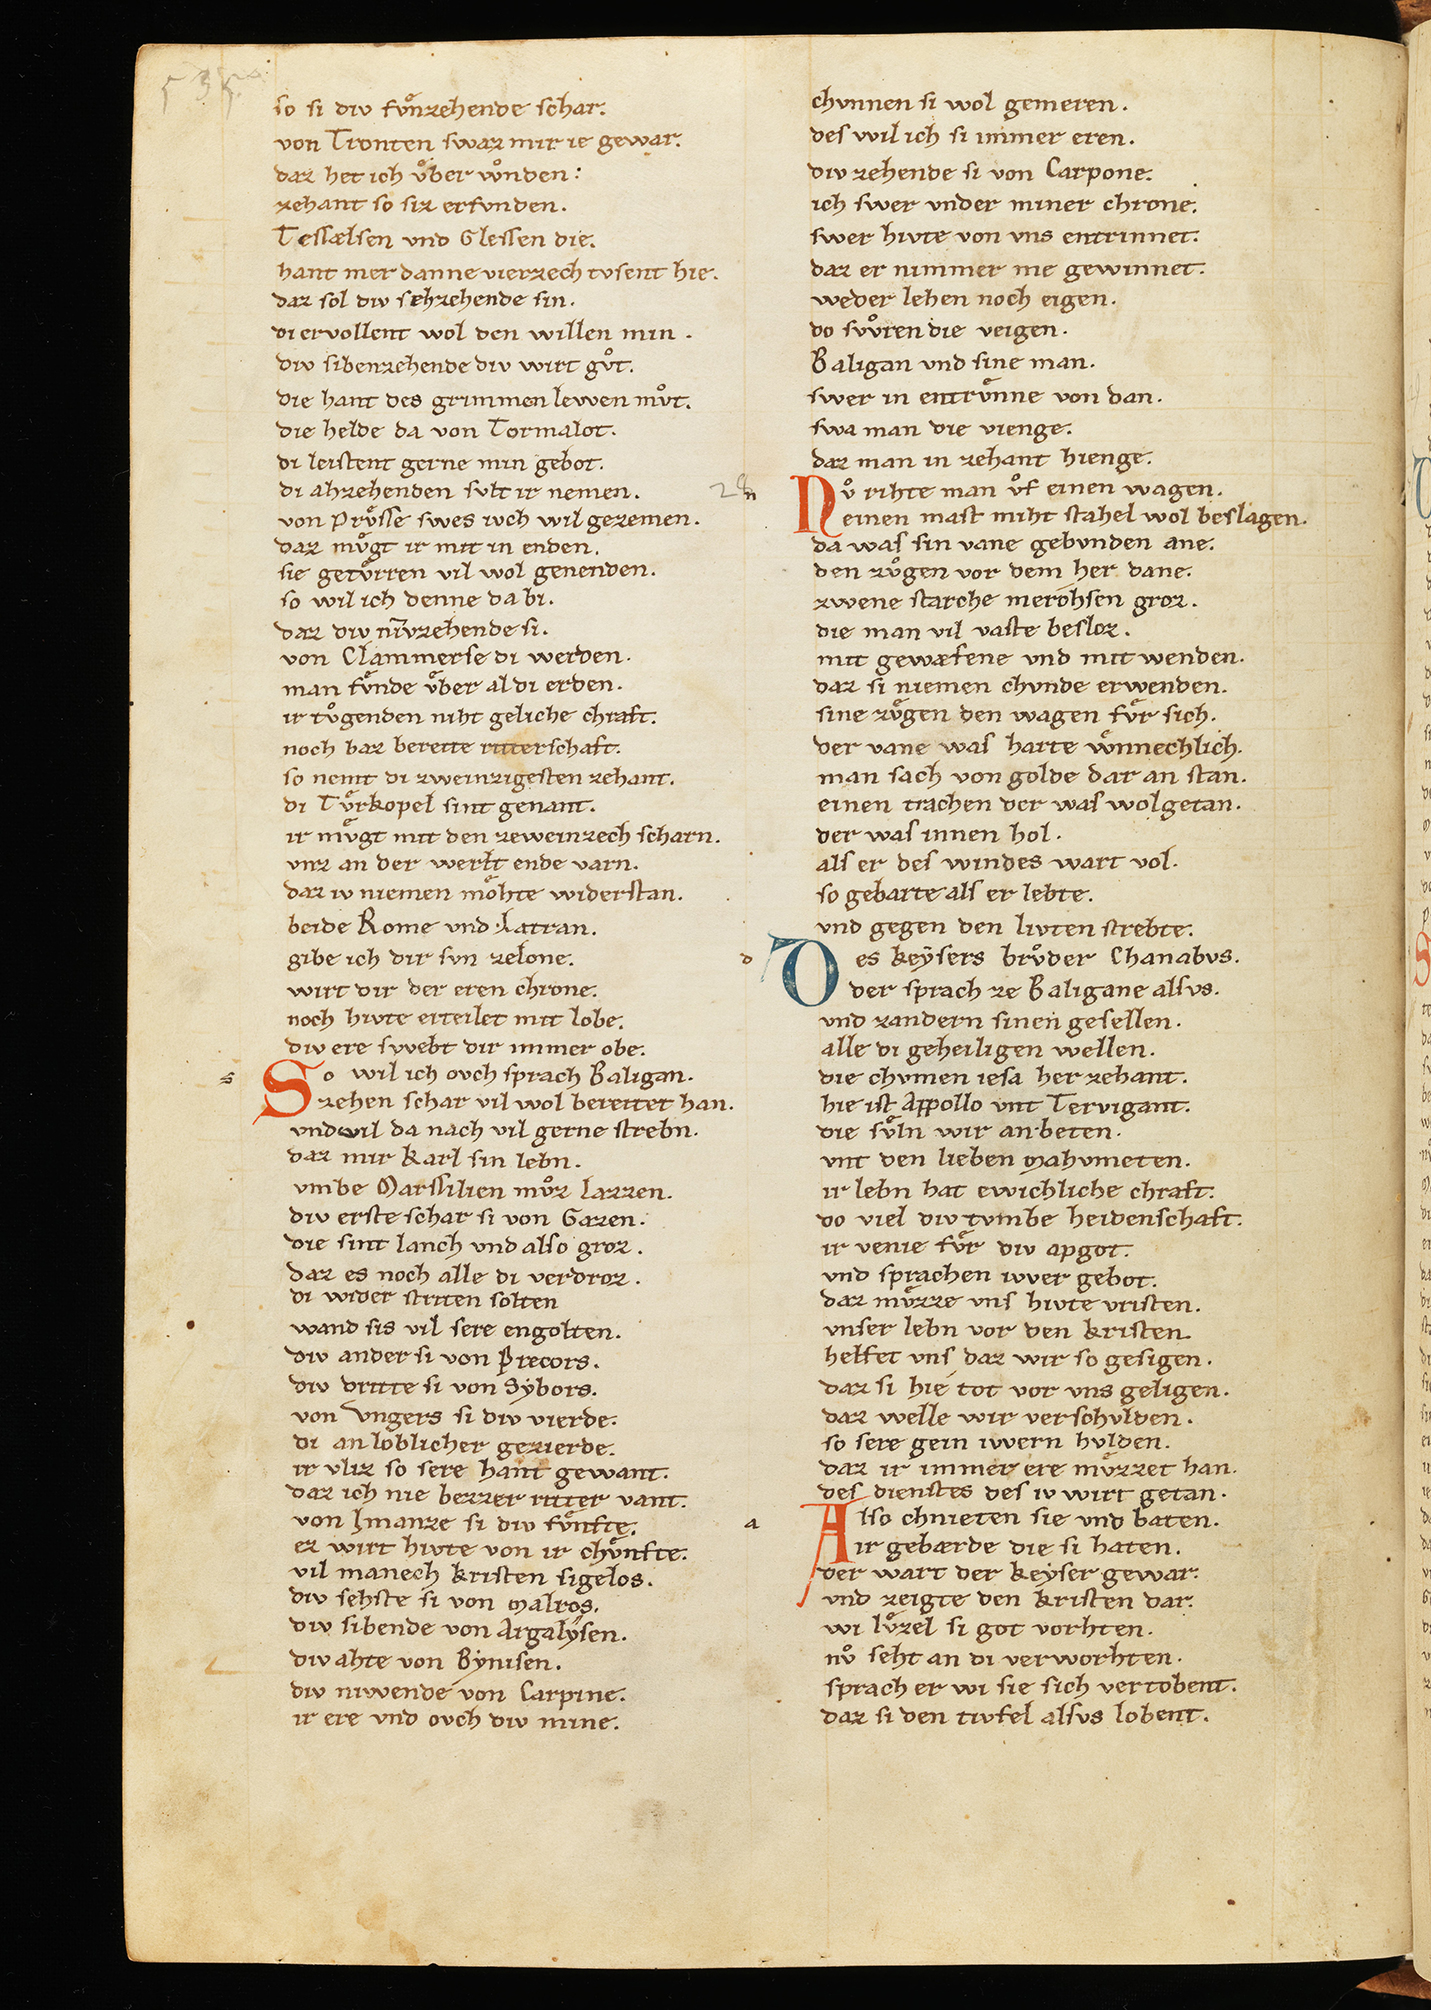 535
so si div fvͤnzehende schar.
von Tronten swaz mir ie gewar.
daz het ich vͦber wͦnden:
zehant so siz erfvnden.
Tesselsen vnd Glessen die.
hant mer danne vierzech tvsent hie.
daz sol div sehzehende sin.
di ervollent wol den willen min.
div sibenzehende div wirt gvͦt.
die hant des grimmen lewen mvͦt.
die helde da von Tormalot.
di leistent gerne min gebot.
di ahzehenden svlt ir nemen.
von Prvͤsse swes ivch wil gezemen.
daz mvͤgt ir mit in enden.
sie getvͤrren vil wol genenden.
so wil ich denne da bi.
daz div nivzehende si.
von Clammerse di werden.
man fvͤnde vͤber al di erden.
ir tvͦgenden niht geliche chraft.
noch baz bereite ritterschaft.
so nemt di zweinzigesten zehant.
di Tvͤrkopel sint genant.
ir mvͤgt mit den zeweinzech scharn.
vnz an der werlt ende varn.
daz iv niemen moͤhte widerstan.
beide Rome vnd Latran.
gibe ich dir svn zelone.
wirt dir der eren chrone.
noch hivte erteilet mit lobe.
div ere swebt dir immer obe.
s
So wil ich ovch sprach Baligan.
zehen schar vil wol bereitet han.
vnd wil da nach vil gerne strebn.
daz mir Karl sin lebn.
vmbe Marssilien mvͦz lazzen.
div erste schar si von Gazen.
die sint lanch vnd also groz.
daz es noch alle di verdroz.
di wider striten solten
wand sis vil sere engolten.
div ander si von Precors.
div dritte si von Sybors.
von Vngers si div vierde.
di an loblicher gezierde.
ir vliz so sere hant gewant.
daz ich nie bezzer ritter vant.
von Imanze si div fvͤnfte.
ez wirt hivte von ir chvͤnfte.
vil manech kristen sigelos.
div sehste si von Malros.
div sibende von Argalysen.
div ahte von Bynisen.
div nivvende von Carpine.
ir ere vnd ovch div mine.
chvnnen si wol gemeren.
des wil ich si immer eren.
div zehende si von Carpone.
ich swer vnder miner chrone.
swer hivte von vns entrinnet.
daz er nimmer me gewinnet.
weder lehen noch eigen.
do swͦren die veigen.
Baligan vnd sine man.
swer in entrvͤnne von dan.
swa man die vienge.
daz man in zehant hienge.
28 n
Nvͦ rihte man vͦf einen wagen.
einen mast miht stahel wol beslagen.
da was sin vane gebvnden ane.
den zvͦgen vor dem her dane.
zwene starche merohsen groz.
die man vil vaste besloz.
mit gewæfene vnd mit wenden.
daz si niemen chvnde erwenden.
sine zvͤgen den wagen fvͤr sich.
der vane was harte wͤnnechlich.
man sach von golde dar an stan.
einen trachen der was wolgetan.
der was innen hol.
als er des windes wart vol.
so gebarte als er lebte.
vnd gegen den livten strebte.
d
Des keysers brvͦder Chanabvs.
der sprach ze Baligane alsvs.
vnd zandern sinen gesellen.
alle di geheiligen wellen.
die chvmen iesa her zehant.
hie ist Appollo vnt Tervigant.
die svͤln wir an beten.
vnt den lieben Mahvmeten.
ir lebn hat ewichliche chraft.
do viel div tvmbe heidenschaft.
ir venie fvͤr div apgot.
vnd sprachen iwer gebot.
daz mvͤzze vns hivte vristen.
vnser lebn vor den kristen.
helfet vns daz wir so gesigen.
daz si hie tot vor vns geligen.
daz welle wir verschvlden.
so sere gein iwern hvlden.
daz ir immer ere mvͤzzet han.
des dienstes des iv wirt getan.
a
Also chnieten sie vnd baten.
ir gebærde die si haten.
der wart der keyser gewar.
vnd zeigte den kristen dar.
wi lvͤzel si got vorhten.
nvͦ seht an di verworhten.
sprach er wi sie sich vertobent.
daz si den tivfel alsvs lobent.